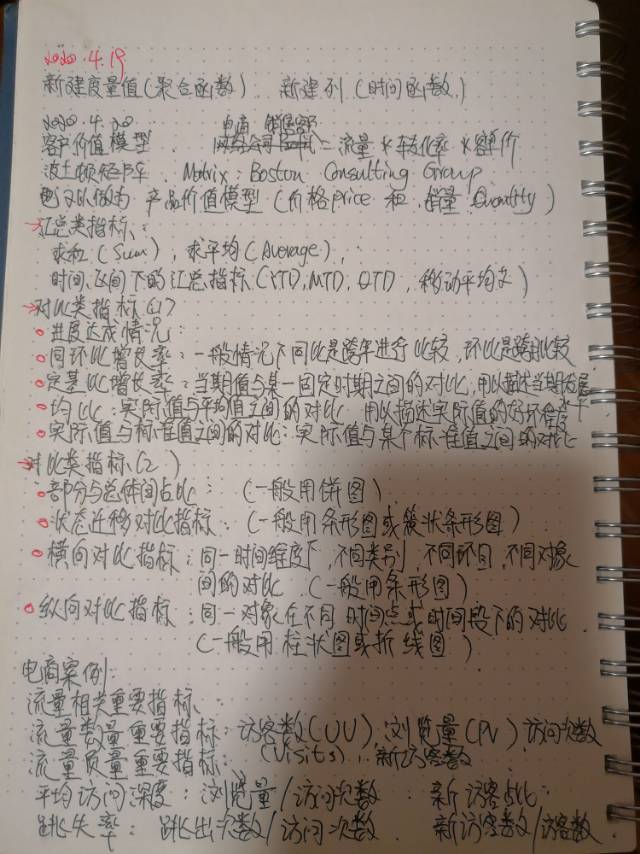 2020.4.19
新建度量值(聚合函数). 新建列(时间函数)
2020.4.20
电商 销售额
客户价值模型. = 流量 * 转化率 * 客单价
波士顿矩阵. Matrix: Boston Consulting Group
也可以做为 产品价值模型 (价格price 和 销量 Quantity)
→汇总类指标:
求和(Sum), 求平均(Average),
时间区间下的汇总指标(YTD, MTD, QTD, 移动平均)
→对比类指标(1)
进度达成情况:
同环比增长率: 一般情况下同比是跨年进行比较, 环比是跨期比较
定基比增长率: 当期值与某一固定时期之间的对比, 用以描述当期发展
水平
均比: 实际值与平均值之间的对比 用以描述实际值的好坏程度
实际值与标准值之间的对比: 实际值与某个标准值之间的对比
→对比类指标(2)
部分与总体间占比: (一般用饼图)
状态迁移对比指标: (一般用条形图或簇状条形图)
横向对比指标: 同一时间维度下, 不同类别, 不同项目, 不同对象
间的对比 (一般用条形图)
纵向对比指标: 同一对象在不同时间点或时间段下的对比.
(一般用柱状图或折线图)
电商案例:
流量相关重要指标、
流量数量重要指标: 访客数(UV), 浏览量(PV) 访问次数
(Visits), 新访客数
流量质量重要指标:
平均访问深度: 浏览量/访问次数 新访客占比:
跳失率: 跳出次数/访问次数. 新访客数/访客数.